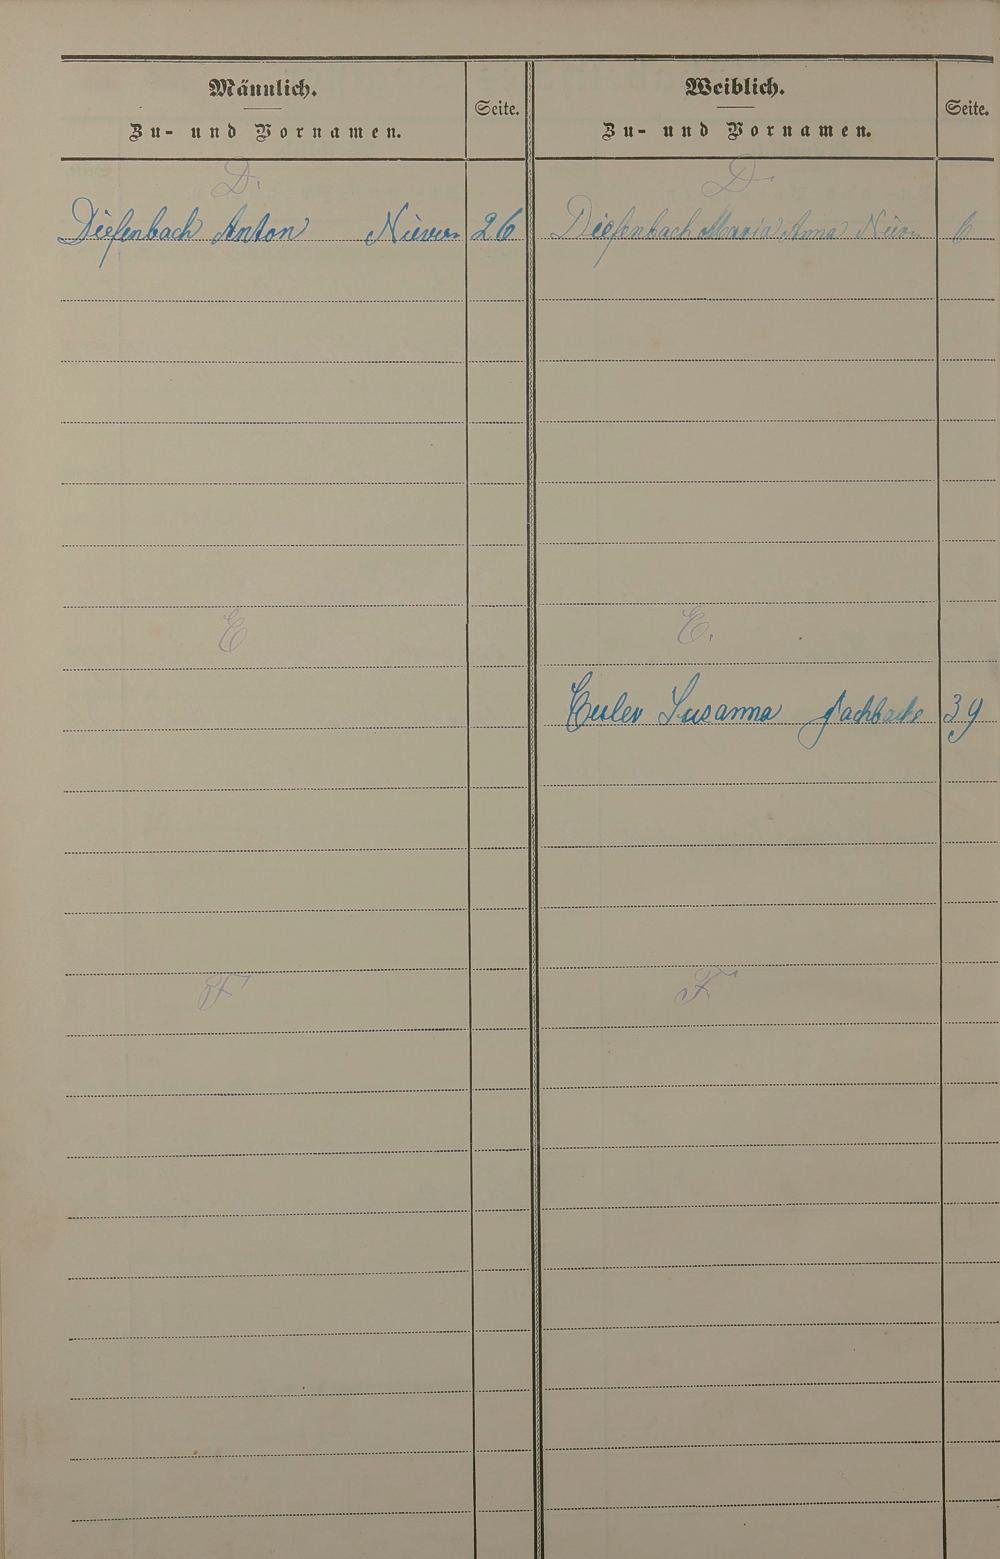 Männlich.
Zu- und Vornamen.
Seite.
Weiblich.
Zu- und Vornamen.
Seite.
D.
D.
Diefenbach Anton Nievern 26
Diefenbach Maria Anna 6
E
E.
Euler Susanna Fachbach 39
F
F